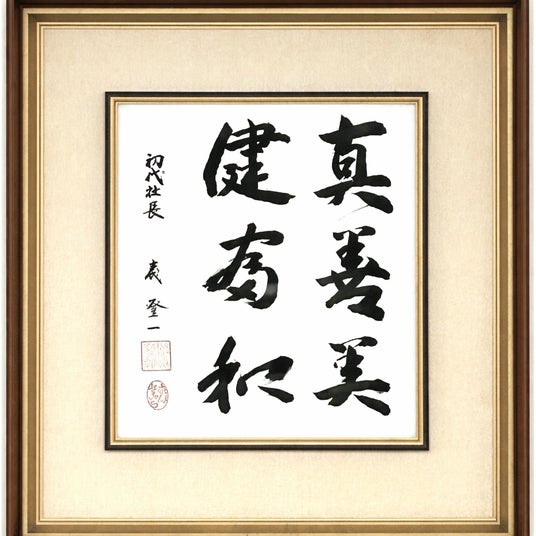 真善美
健富和
初代社長
登一